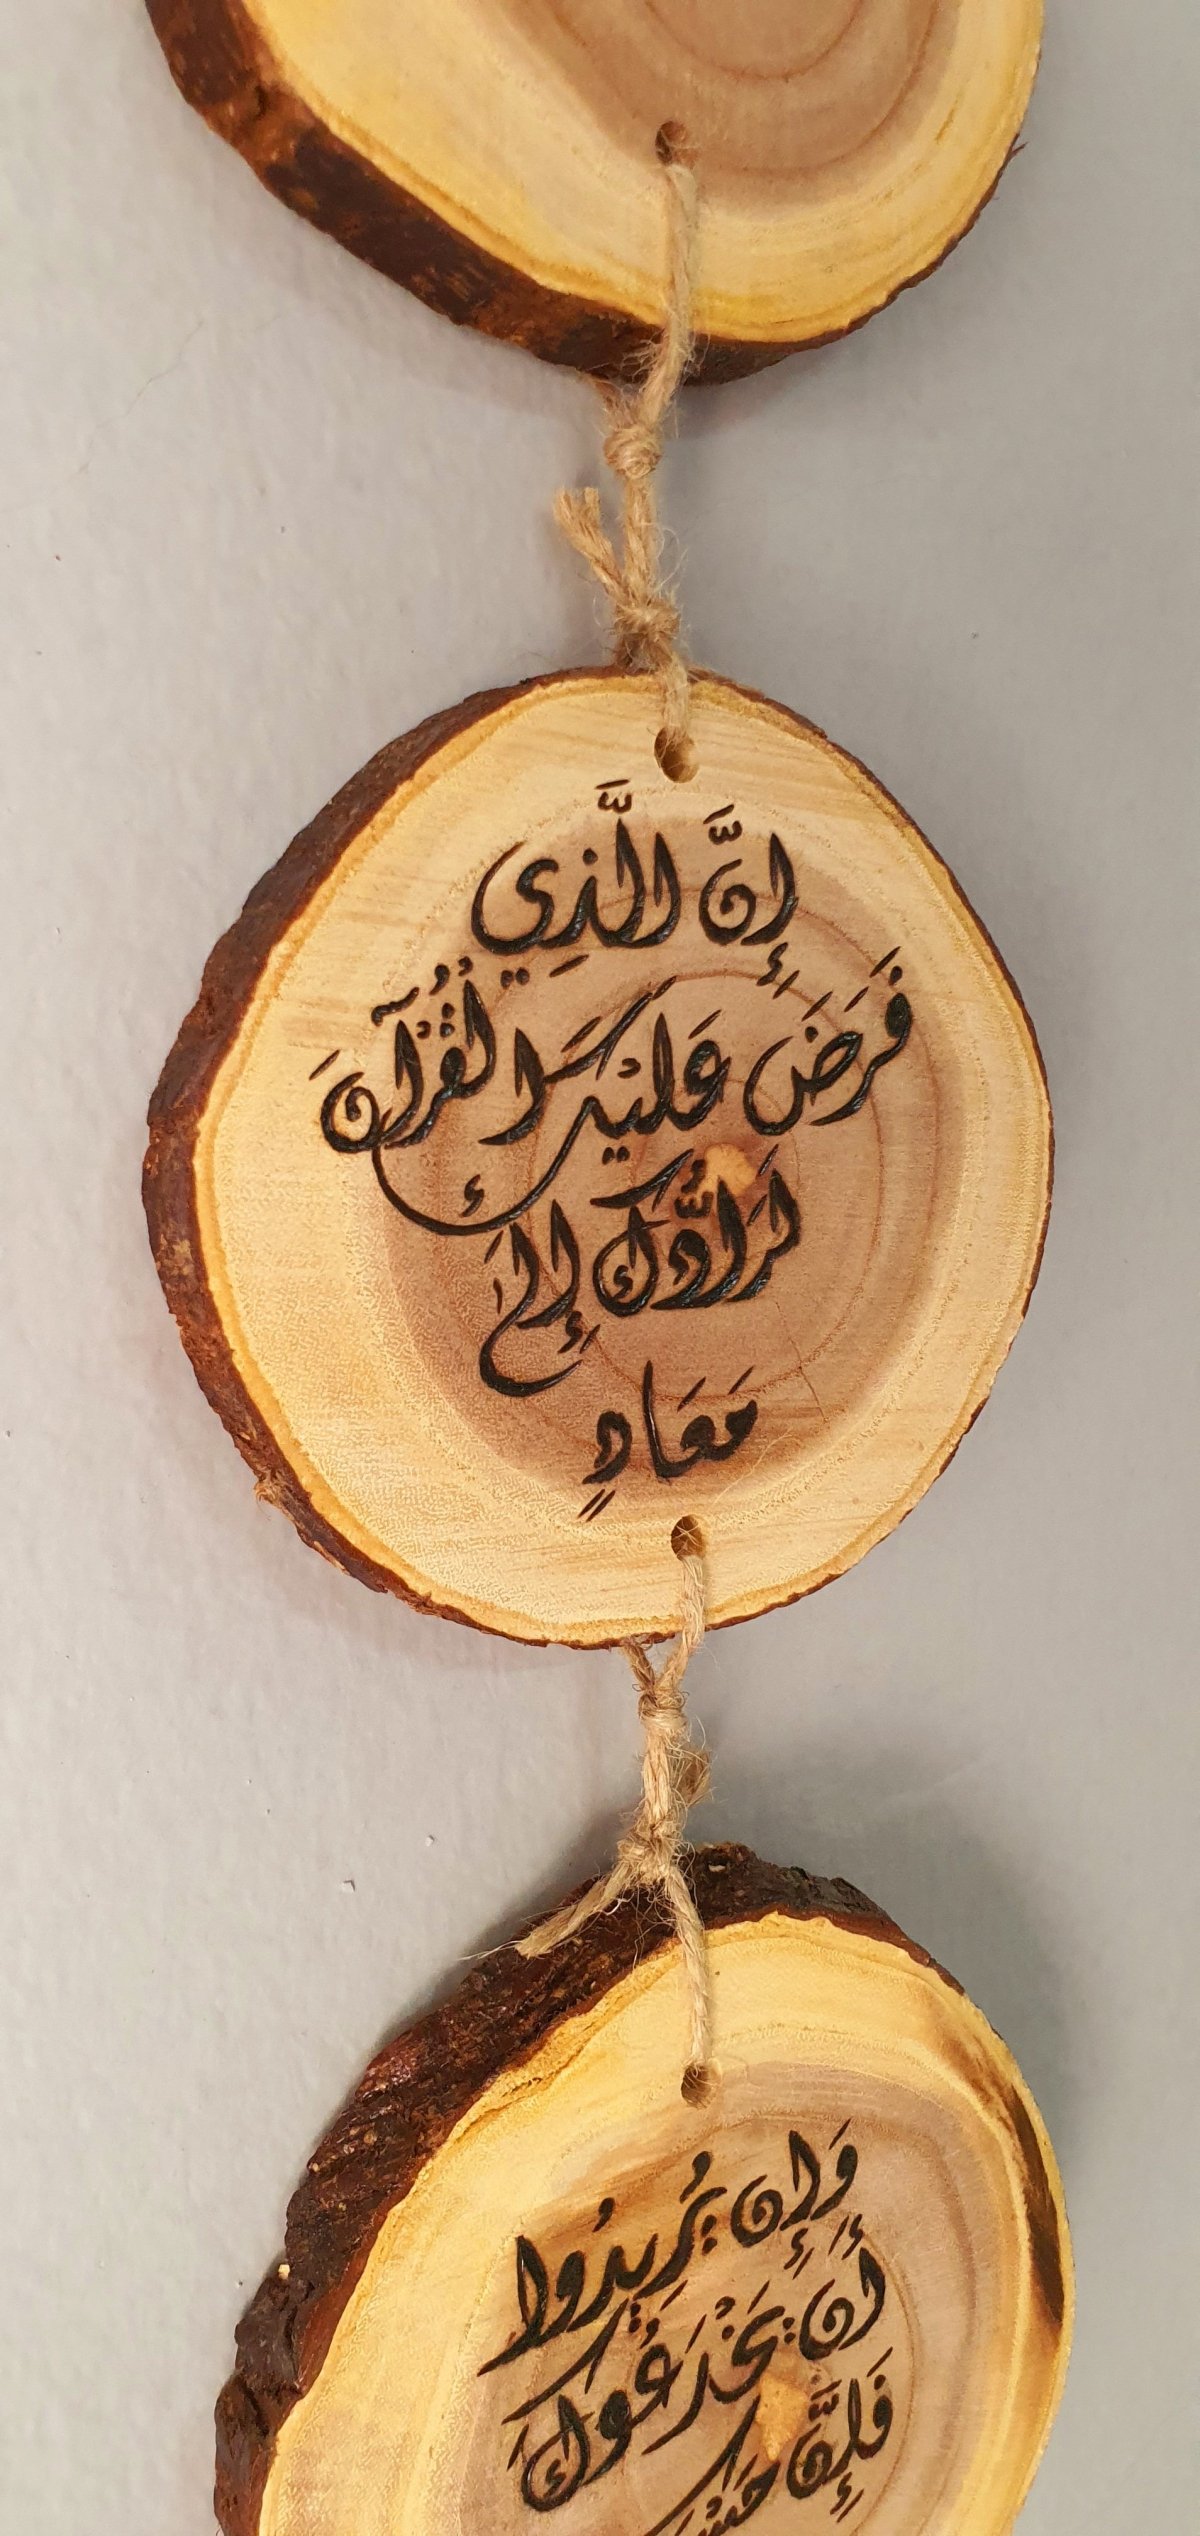 إِنَّ الَّذِي
فَرَضَ عَلَيْكَ الْقُرْآنَ
لَرَادُّكَ إِلَىٰ
مَعَادٍ
وَإِن يُرِيدُوا
أَن يَخْدَعُوكَ
فَإِنَّ